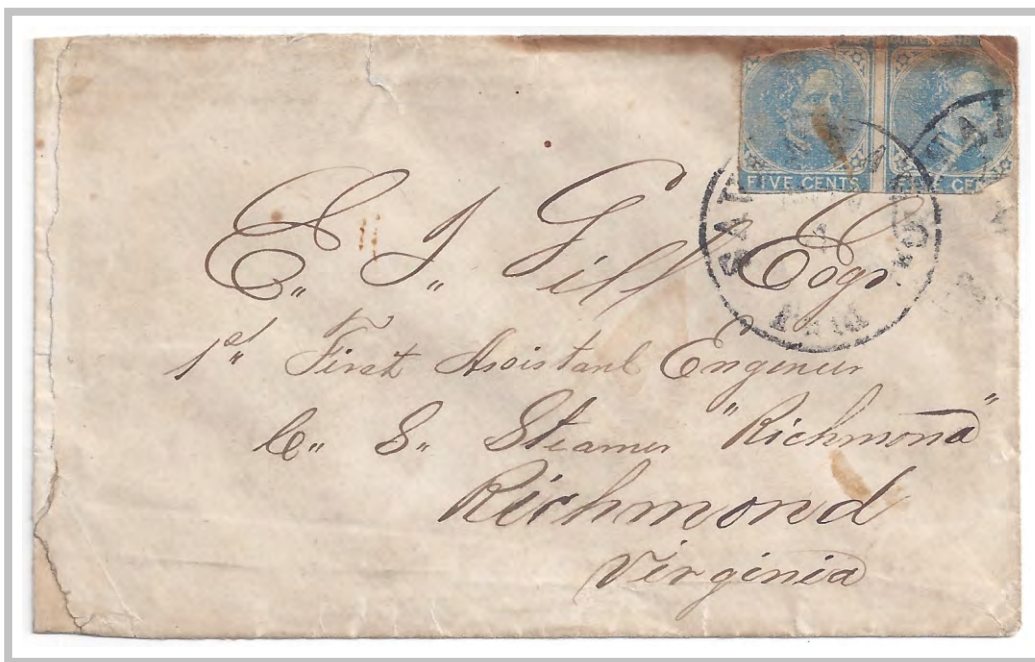 FIVE CENTS FIVE CEN
E. J. Gill Esqr.
1st First Assistant Engineer
C. S. Steamer "Richmond"
Richmond
Virginia